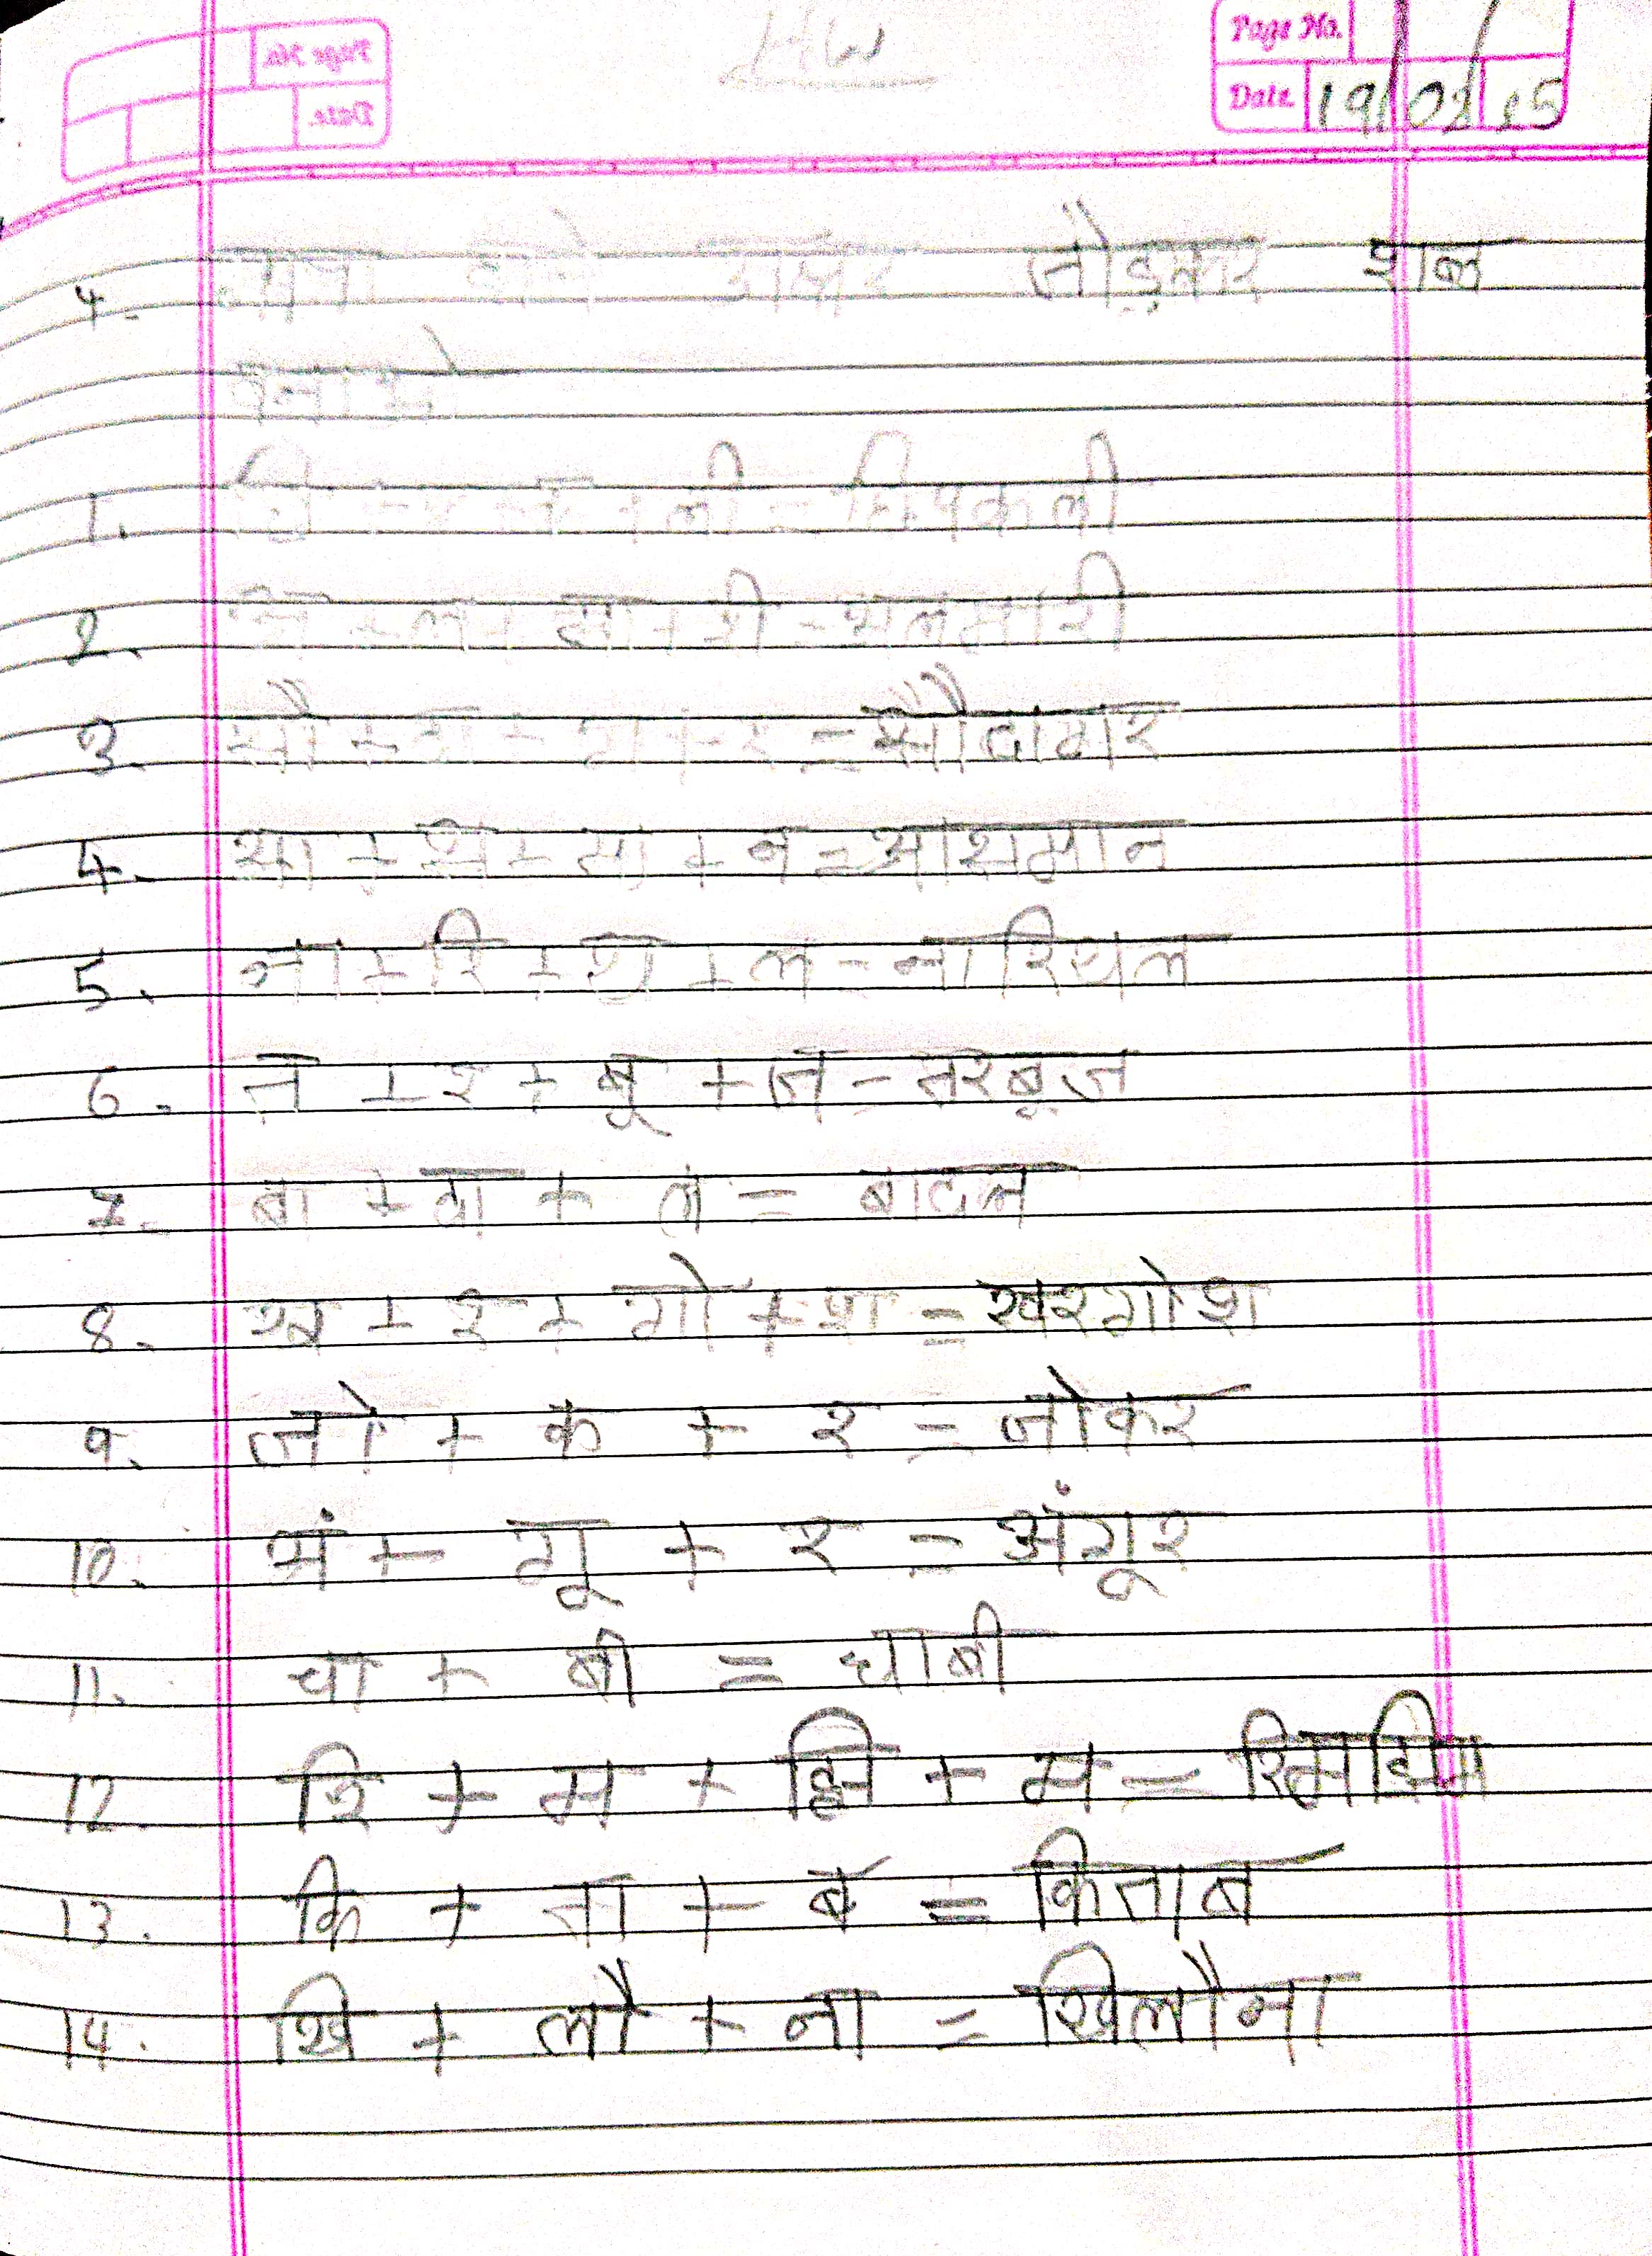 HW
Page No.
Date 19/02/25
4. जोड़कर शब्द
बनाओ
1. छि + प + क + ली = छिपकली
2. अ + ल + मा + री = अलमारी
3.
4. आ + स + मा + न = आसमान
5. ना + रि + य + ल = नारियल
6. त + र + बू + ज = तरबूज
7. बा + द + ल = बादल
8. ख + र + गो + श = खरगोश
9. जो + क + र = जोकर
10. अं + गू + र = अंगूर
11. चा + बी = चाबी
12. रि + म + झि + म = रिमझिम
13. कि + ता + ब = किताब
14. खि + लौ + ना = खिलौना